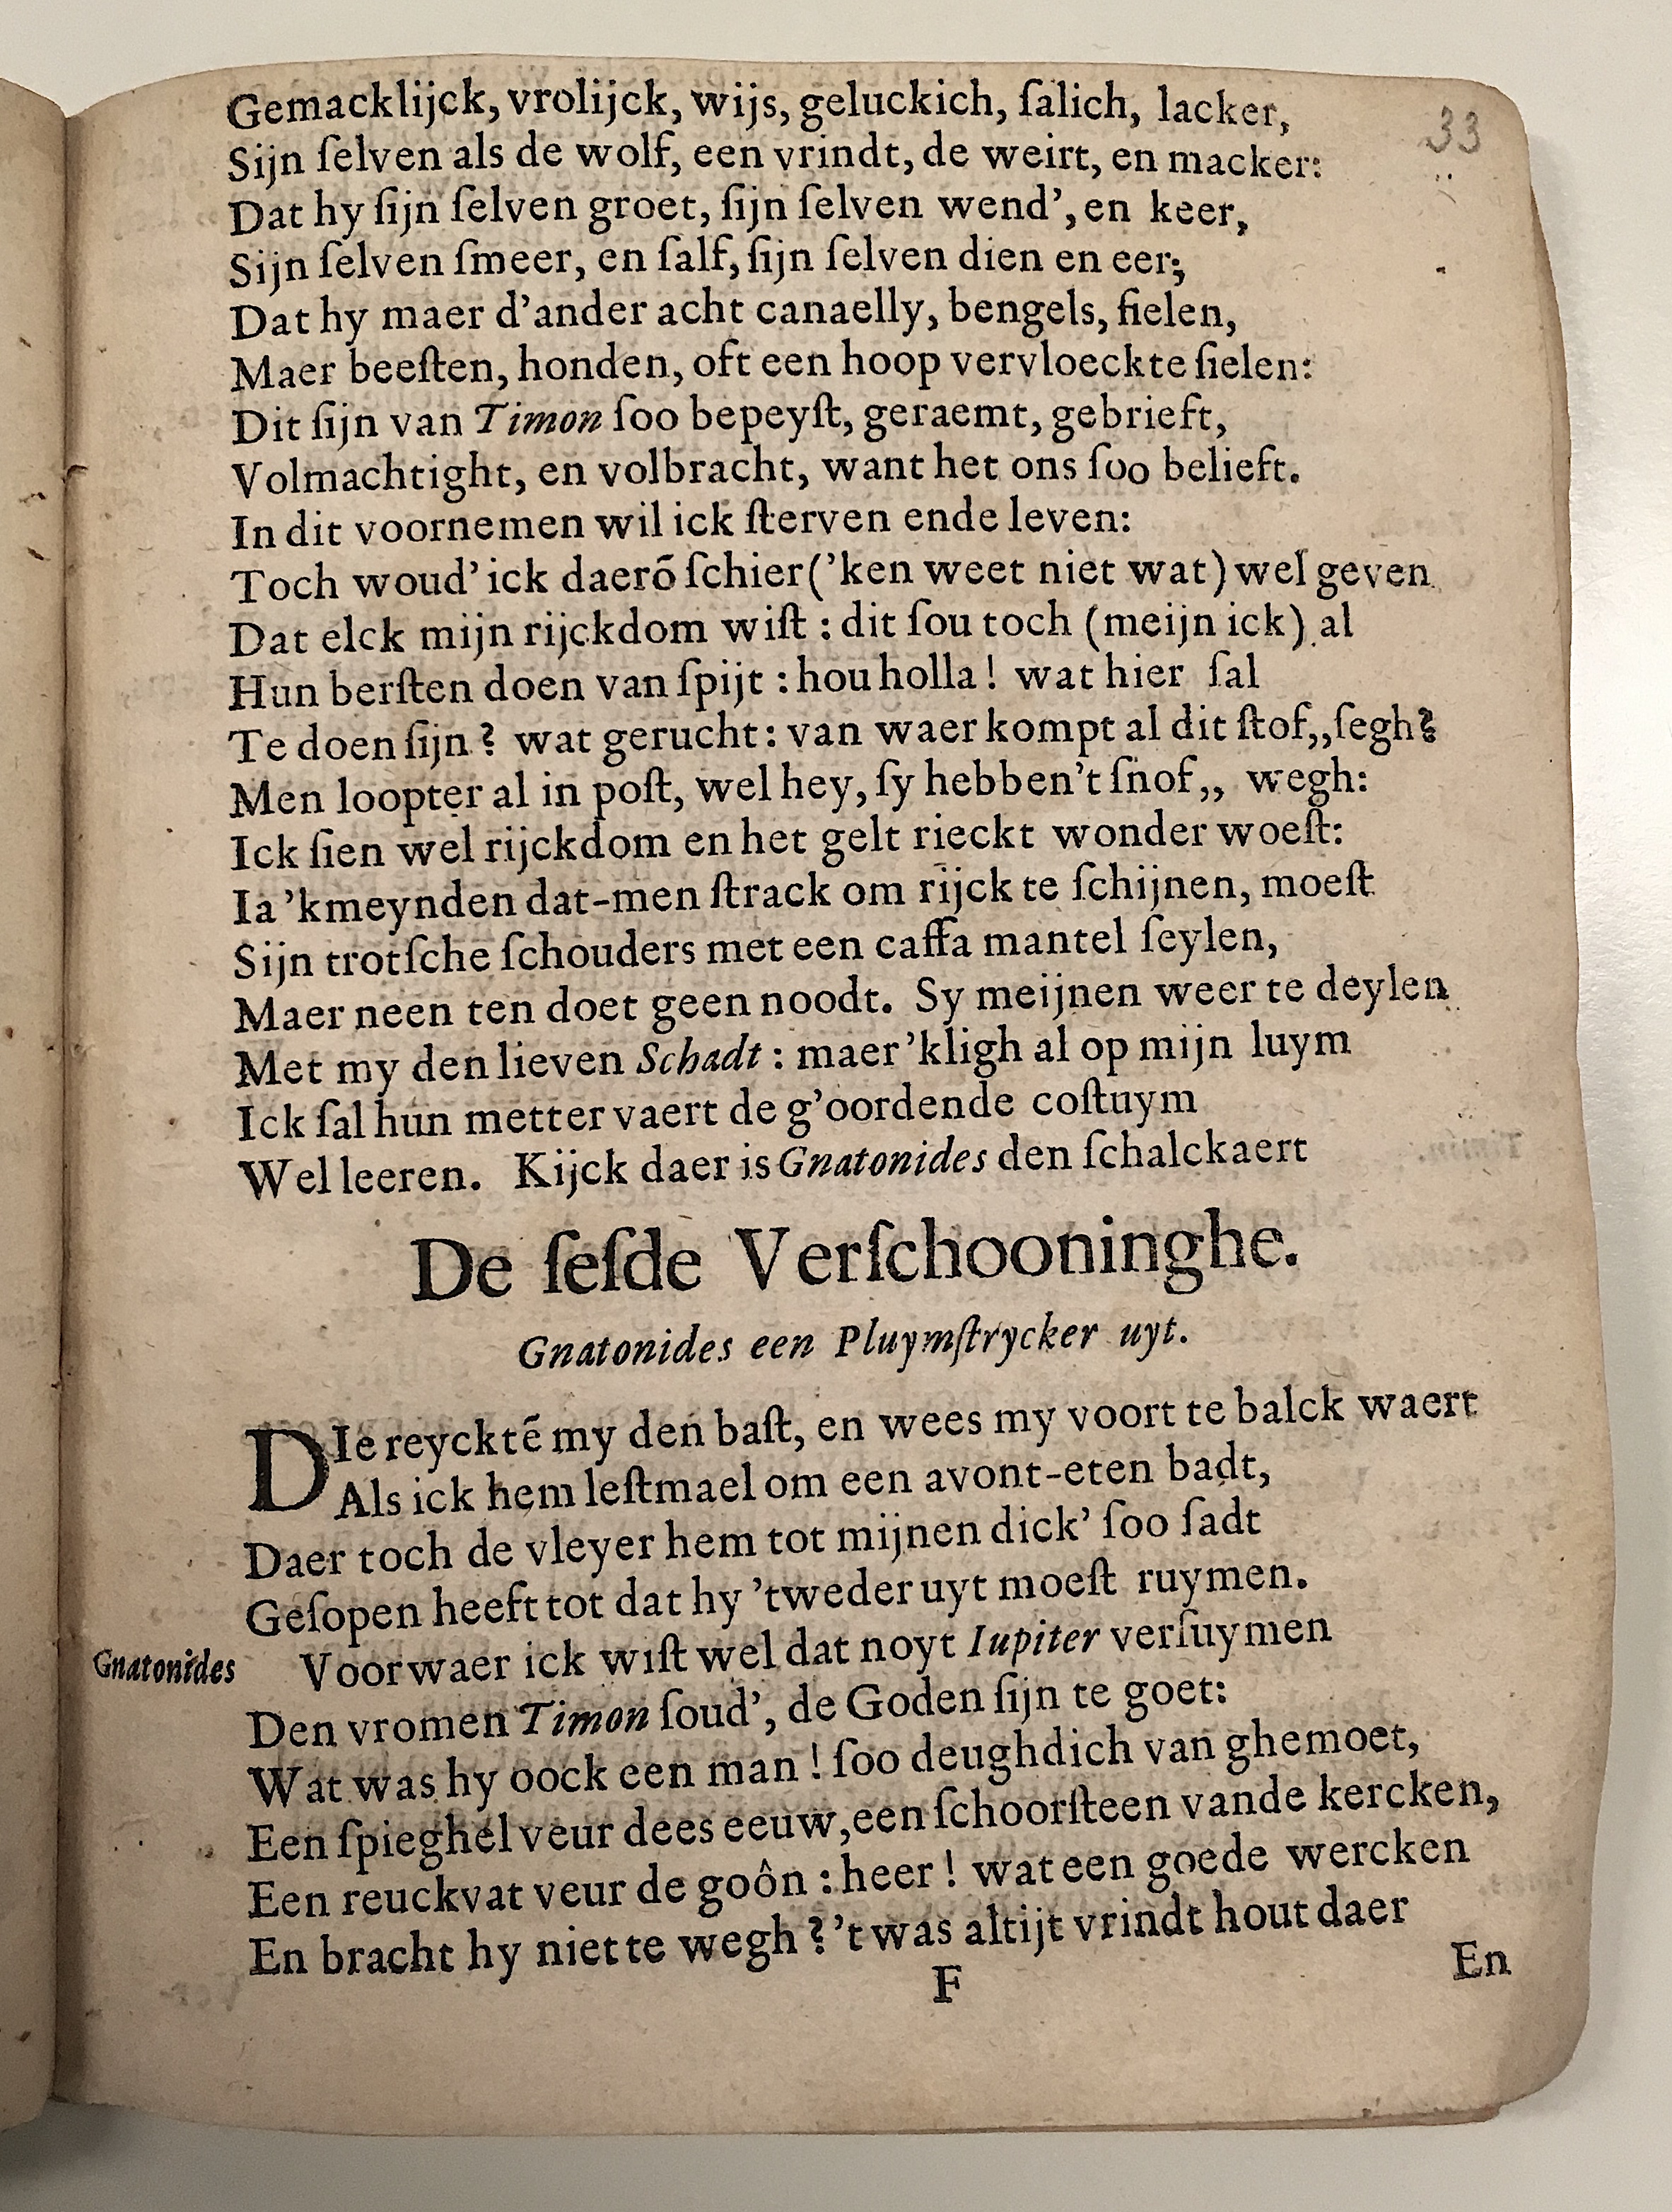 33
Gemacklijck, vrolijck, wijs, geluckich, ſalich, lacker,
Sijn ſelven als de wolf, een vrindt, de weirt, en macker:
Dat hy ſijn ſelven groet, ſijn ſelven wend', en keer,
Sijn ſelven ſmeer, en ſalf, ſijn ſelven dien en eer;
Dat hy maer d'ander acht canaelly, bengels, fielen,
Maer beeſten, honden, oft een hoop vervloeckte ſielen:
Dit ſijn van Timon ſoo bepeyſt, geraemt, gebrieft,
Volmachtight, en volbracht, want het ons ſoo belieft.
In dit voornemen wil ick ſterven ende leven:
Toch woud' ick daerō ſchier ('ken weet niet wat) wel geven
Dat elck mijn rijckdom wiſt : dit ſou toch (meijn ick) al
Hun berſten doen van ſpijt : hou holla ! wat hier ſal
Te doen ſijn ? wat gerucht : van waer kompt al dit ſtof,,ſegh?
Men loopter al in poſt, wel hey, ſy hebben't ſnof,, wegh:
Ick ſien wel rijckdom en het gelt rieckt wonder woeſt:
Ia 'kmeynden dat-men ſtrack om rijck te ſchijnen, moeſt
Sijn trotſche ſchouders met een caffa mantel ſeylen,
Maer neen ten doet geen noodt. Sy meijnen weer te deylen
Met my den lieven Schadt : maer 'kligh al op mijn luym
Ick ſal hun metter vaert de g'oordende coſtuym
Wel leeren. Kijck daer is Gnatonides den ſchalckaert
De ſeſde Verſchooninghe.
Gnatonides een Pluymſtrycker uyt.
DIe reycktē my den baſt, en wees my voort te balck waert
Als ick hem leſtmael om een avont-eten badt,
Daer toch de vleyer hem tot mijnen dick' ſoo ſadt
Geſopen heeft tot dat hy 'tweder uyt moeſt ruymen.
Gnatonides Voorwaer ick wiſt wel dat noyt Iupiter verſuymen
Den vromen Timon ſoud', de Goden ſijn te goet:
Wat was hy oock een man ! ſoo deughdich van ghemoet,
Een ſpieghel veur dees eeuw, een ſchoorſteen vande kercken,
Een reuckvat veur de goôn : heer ! wat een goede wercken
En bracht hy niet te wegh ? 't was altijt vrindt hout daer
F
En